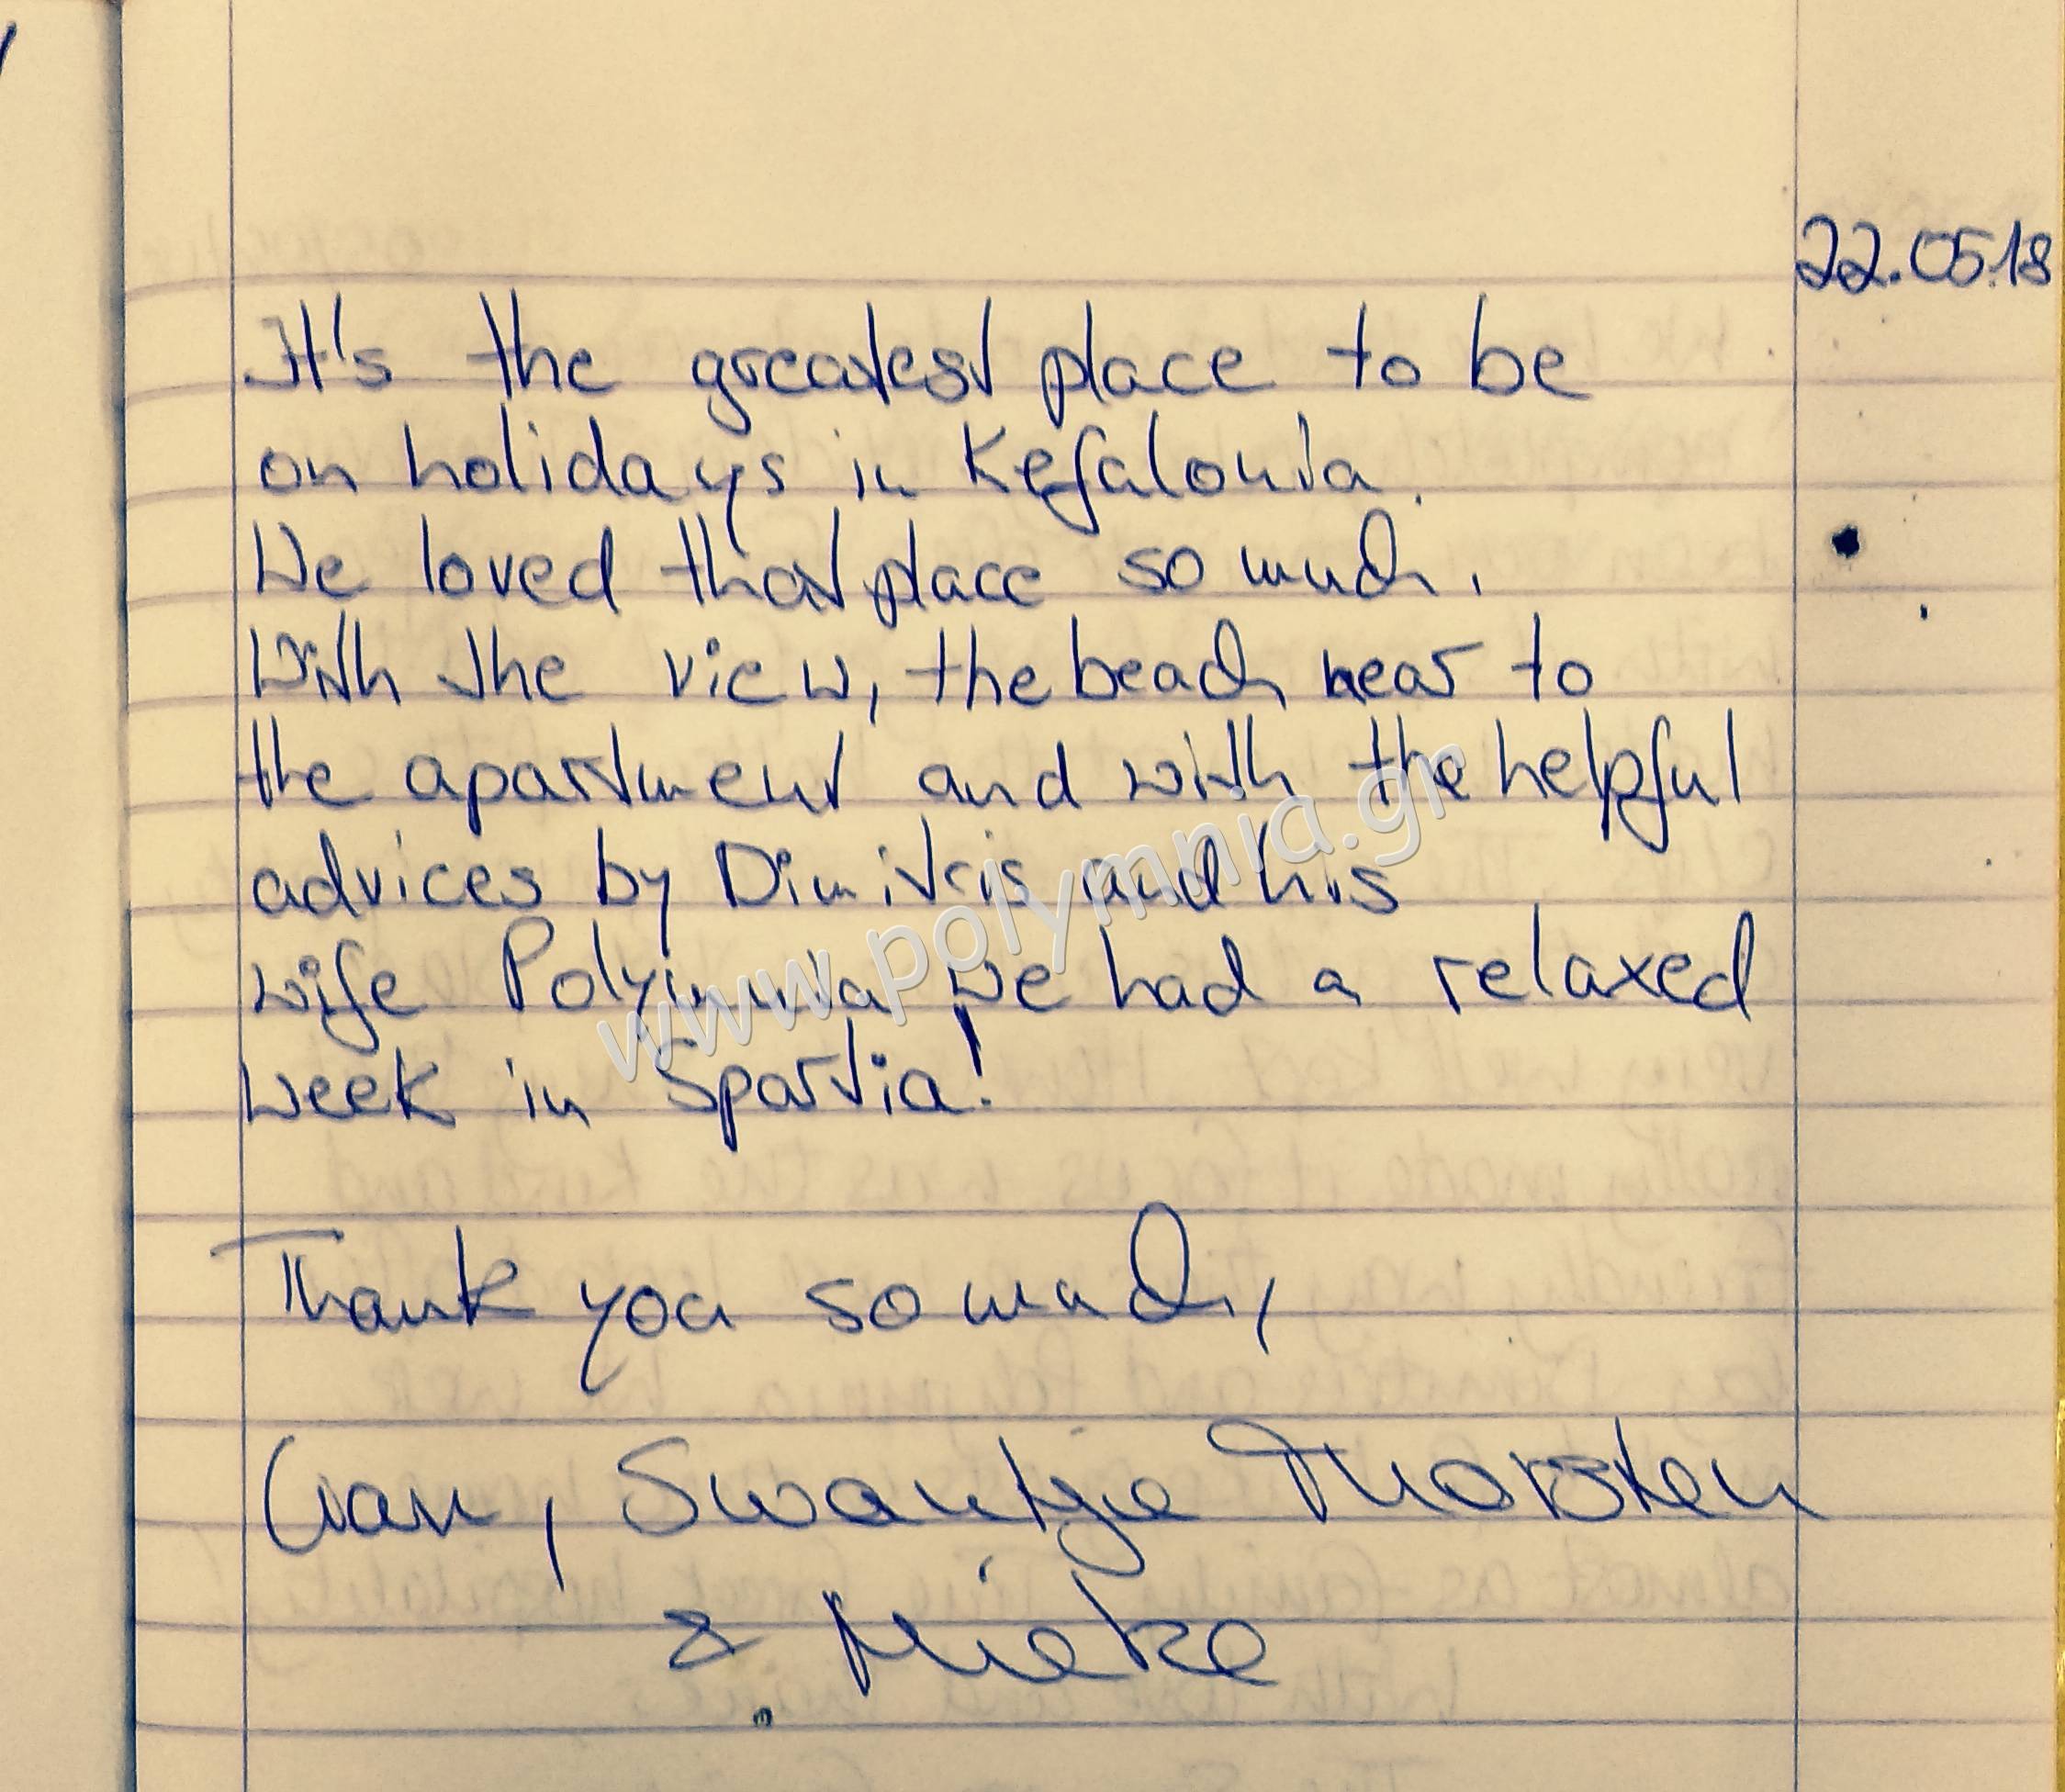 22.05.18
It's the greatest place to be
on holidays in Kefalonia.
We loved that place so much.
With the view, the beach near to
the apartment and with the helpful
advices by Dimitris and his
wife Polyimnia we had a relaxed
week in Spartia!
Thank you so much,
Swantje Thorsten
& Mieke
www.polymnia.gr